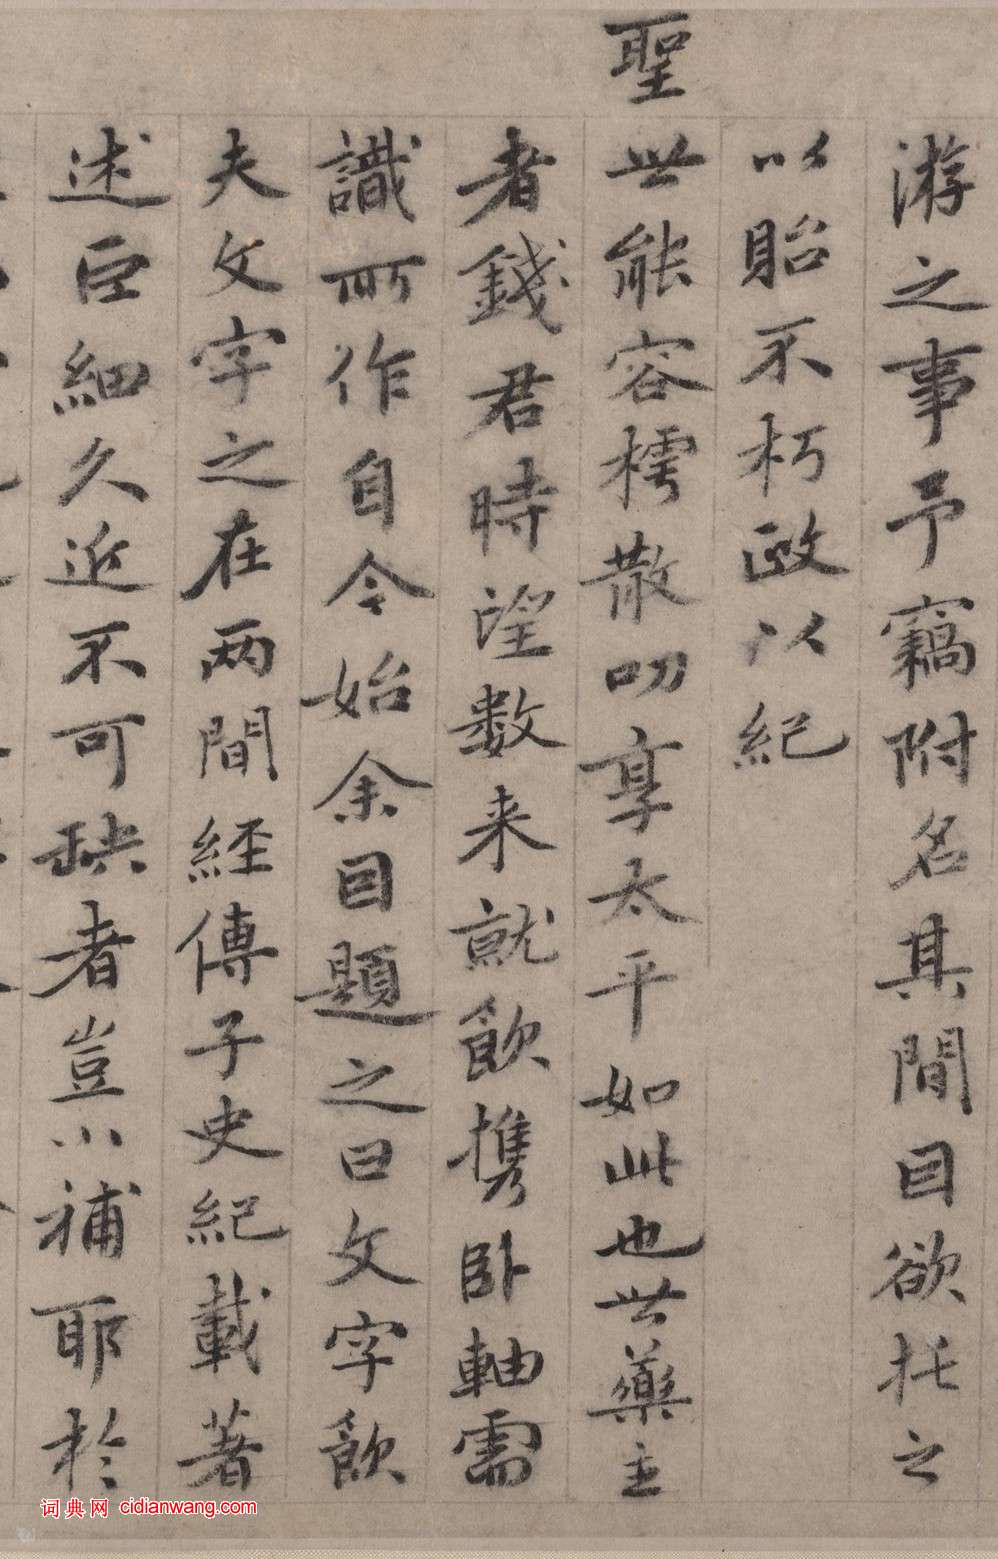 游之事予竊附名其間因欲托之
以貽不朽政以紀
聖世能容樗散叨享太平如此也世藥主
者錢君時望數来就飲携卧軸需
識所作自今始余因題之曰文字飲
夫文字之在两間經傳子史紀載著
述巨細久近不可缺者豈小補耶於
词典网 cidianwang.com